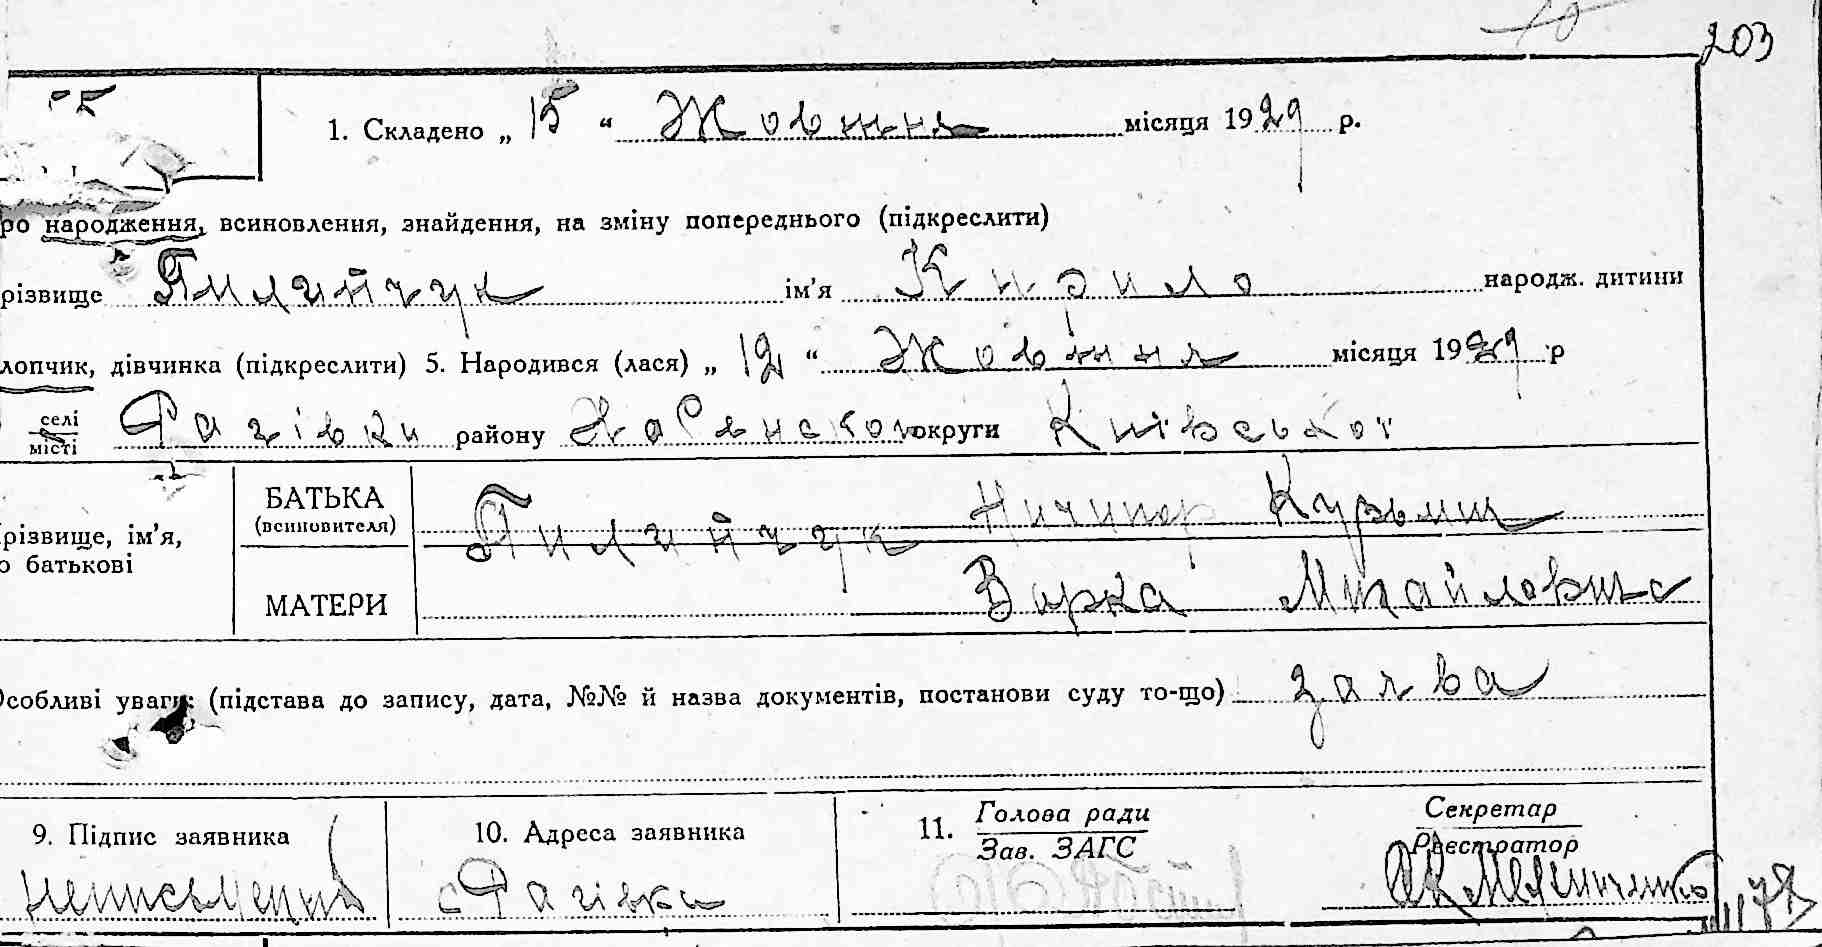 203
1. Складено „ 15 “ Жовтня місяця 1929 р.
ро народження, всиновлення, знайдення, на зміну попереднього (підкреслити)
різвище Пилипчук ім’я Кирило народж. дитини
лопчик, дівчинка (підкреслити) 5. Народився (лася) „ 12 “ Жовтня місяця 1929 р
селі
місті Фазівки району округи Київської
різвище, ім’я,
о батькові
БАТЬКА
(всиновителя)
Пилипчук Ничипор Кузьмич
МАТЕРИ
Варка Михайловна
Особливі уваги: (підстава до запису, дата, №№ й назва документів, постанови суду то-що) заява
9. Підпис заявника
неписьменний
10. Адреса заявника
с Фазівка
11. Голова ради
Зав. ЗАГС
Секретар
Реєстратор